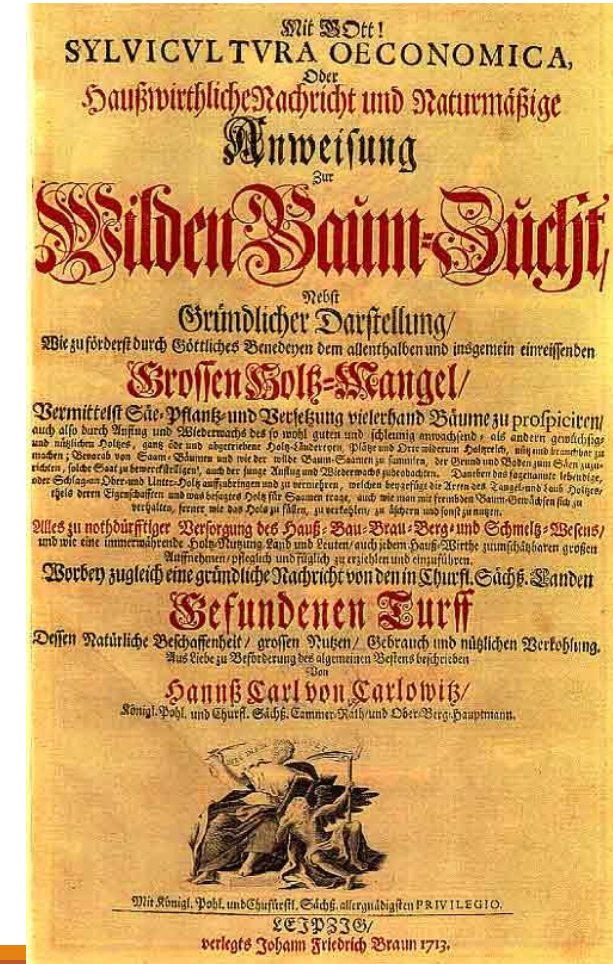 Mit GOtt!
SYLVICVLTVRA OECONOMICA,
Oder
Haußwirthliche Nachricht und Naturmäßige
Anweisung
Zur
Wilden Baum-Zucht/
Nebst
Gründlicher Darstellung/
Wie zu förderst durch Göttliches Benedeyen dem allenthalben und insgemein einreissenden
Grossen Holtz-Mangel/
Vermittelst Säe-Pflantz- und Versetzung vielerhand Bäume zu prospiciren/
auch also durch Anflug und Wiederwachs des so wohl guten und schleunig anwachsend- als andern gewüchsig-
und nützlichen Holtzes, gantz öde und abgetriebene Holtz-Ländereyen, Plätze und Orte widerum Holtzreich, nütz und brauchbar zu
machen; Bevorab von Saam-Bäumen und wie der wilde Baum-Saamen zu sammlen, der Grund und Boden zum Säen zuzu-
richten, solche Saat zu bewerckstelligen, auch der junge Anflug und Wiederwachs zu beobachten. Daneben das sogenannte lebendige,
oder Schlag-an Ober- und Unter-Holtz aufzubringen und zu vermehren, welchen beygefügt die Arten des Tangel- und Laub-Holtzes/
theils deren Eigenschafften und was besagtes Holtz für Saamen trage, auch wie man mit frembden Baum-Gewächsen sich zu
verhalten, ferner wie das Holtz zu fällen, zu verkohlen, zu äschern und sonst zu nutzen.
Alles zu nothdürfftiger Versorgung des Hauß-Bau-Brau-Berg- und Schmeltz-Wesens/
und wie eine immerwährende Holtz-Nutzung Land und Leuten/ auch jedem Hauß-Wirthe zu unschätzbaren großen
Auffnehmen/ pfleglich und füglich zu erziehlen und einzuführen.
Worbey zugleich eine gründliche Nachricht von den in Churfl. Sächß. Landen
Gefundenen Turff
Dessen Natürliche Beschaffenheit/ grossen Nutzen/ Gebrauch und nützlichen Verkohlung.
Aus Liebe zu Beförderung des algemeinen Bestens beschrieben
Von
Hannß Carl von Carlowitz/
Königl. Pohl. und Churfl. Sächß. Cammer-Rath/ und Ober-Berg-Hauptmann.
Mit Königl. Pohl. und Chufürstl. Sächß. allergnädigsten PRIVILEGIO.
LEIPZIG/
verlegts Johann Friedrich Braun 1713.